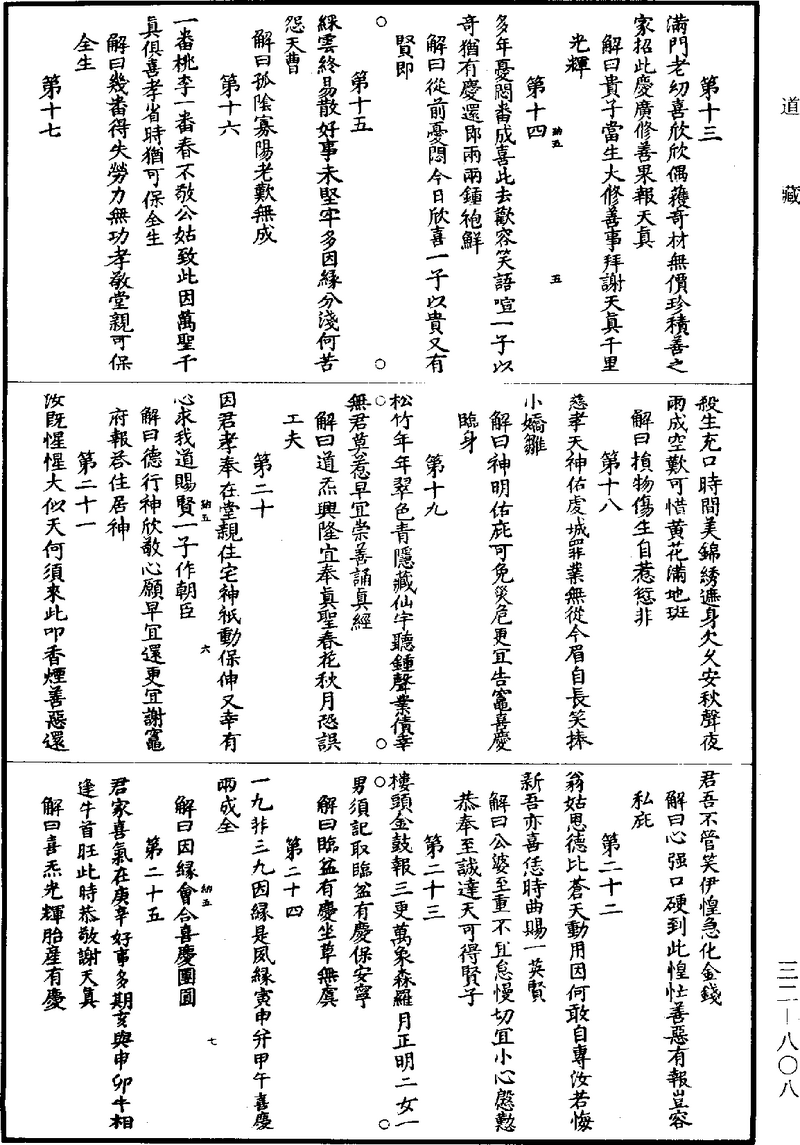 道藏
第十三
滿門老幼喜欣欣偶穫奇材無價珍積善之
家招此慶廣修善果報天真
解曰貴子當生大修善事拜謝天真千里
光輝
第十四
納五
五
多年憂悶番成喜此去歡容笑語喧一子以
奇猶有慶還即兩兩鍾袍鮮
解曰從前憂悶今日欣喜一子以貴又有
賢郎
第十五
綵雲終易散好事未堅牢多因緣分淺何苦
怨天曹
解曰孤陰寡陽老歎無成
第十六
一番桃李一番春不敬公姑致此因萬聖千
真俱喜孝省時猶可保全生
解曰幾番得失勞力無功孝敬堂親可保
全生
第十七
殺生充口時間美錦綉遮身欠久安秋聲夜
雨成空歎可惜黃花滿地班
解曰損物傷生自惹愆非
第十八
慈孝天神佑虔城罪業無從今眉自長笑捧
小嬌雛
解曰神明佑庇可免災危更宜告竈喜慶
臨身
第十九
松竹年年翠色青隱藏仙宇聽鍾聲業債幸
無君莫惹早宜崇善誦真經
解曰道炁興隆宜奉真聖春花秋月恐誤
工夫
第二十
因君孝奉在堂親住宅神祇動保伸又幸有
心求我道賜賢一子作朝臣
納五
六
解曰德行神欣敬心願早宜還更宜謝竈
府報荅住居神
第二十一
汝既惺惺大似天何須來此叩香煙善惡還
君吾不管笑伊惶急化金錢
解曰心强口硬到此惶忙善惡有報豈容
私庇
第二十二
翁姑恩德比蒼天動用因何敢自專汝若悔
新吾亦喜恁時曲賜一英賢
解曰公婆至重不宜怠慢切宜小心慇懃
恭奉至誠達天可得賢子
第二十三
樓頭金鼓報三更萬象森羅月正明二女一
男須記取臨盆有慶保安寧
解曰臨盆有慶坐草無虞
第二十四
一九非三九因緣是夙緣寅申并甲午喜慶
兩成全
解曰因緣會合喜慶團圓
納五
七
第二十五
君家喜氣在庚辛好事多期亥與申卯午相
逢牛首旺此時恭敬謝天真
解曰喜炁光輝胎產有慶
三二—八〇八